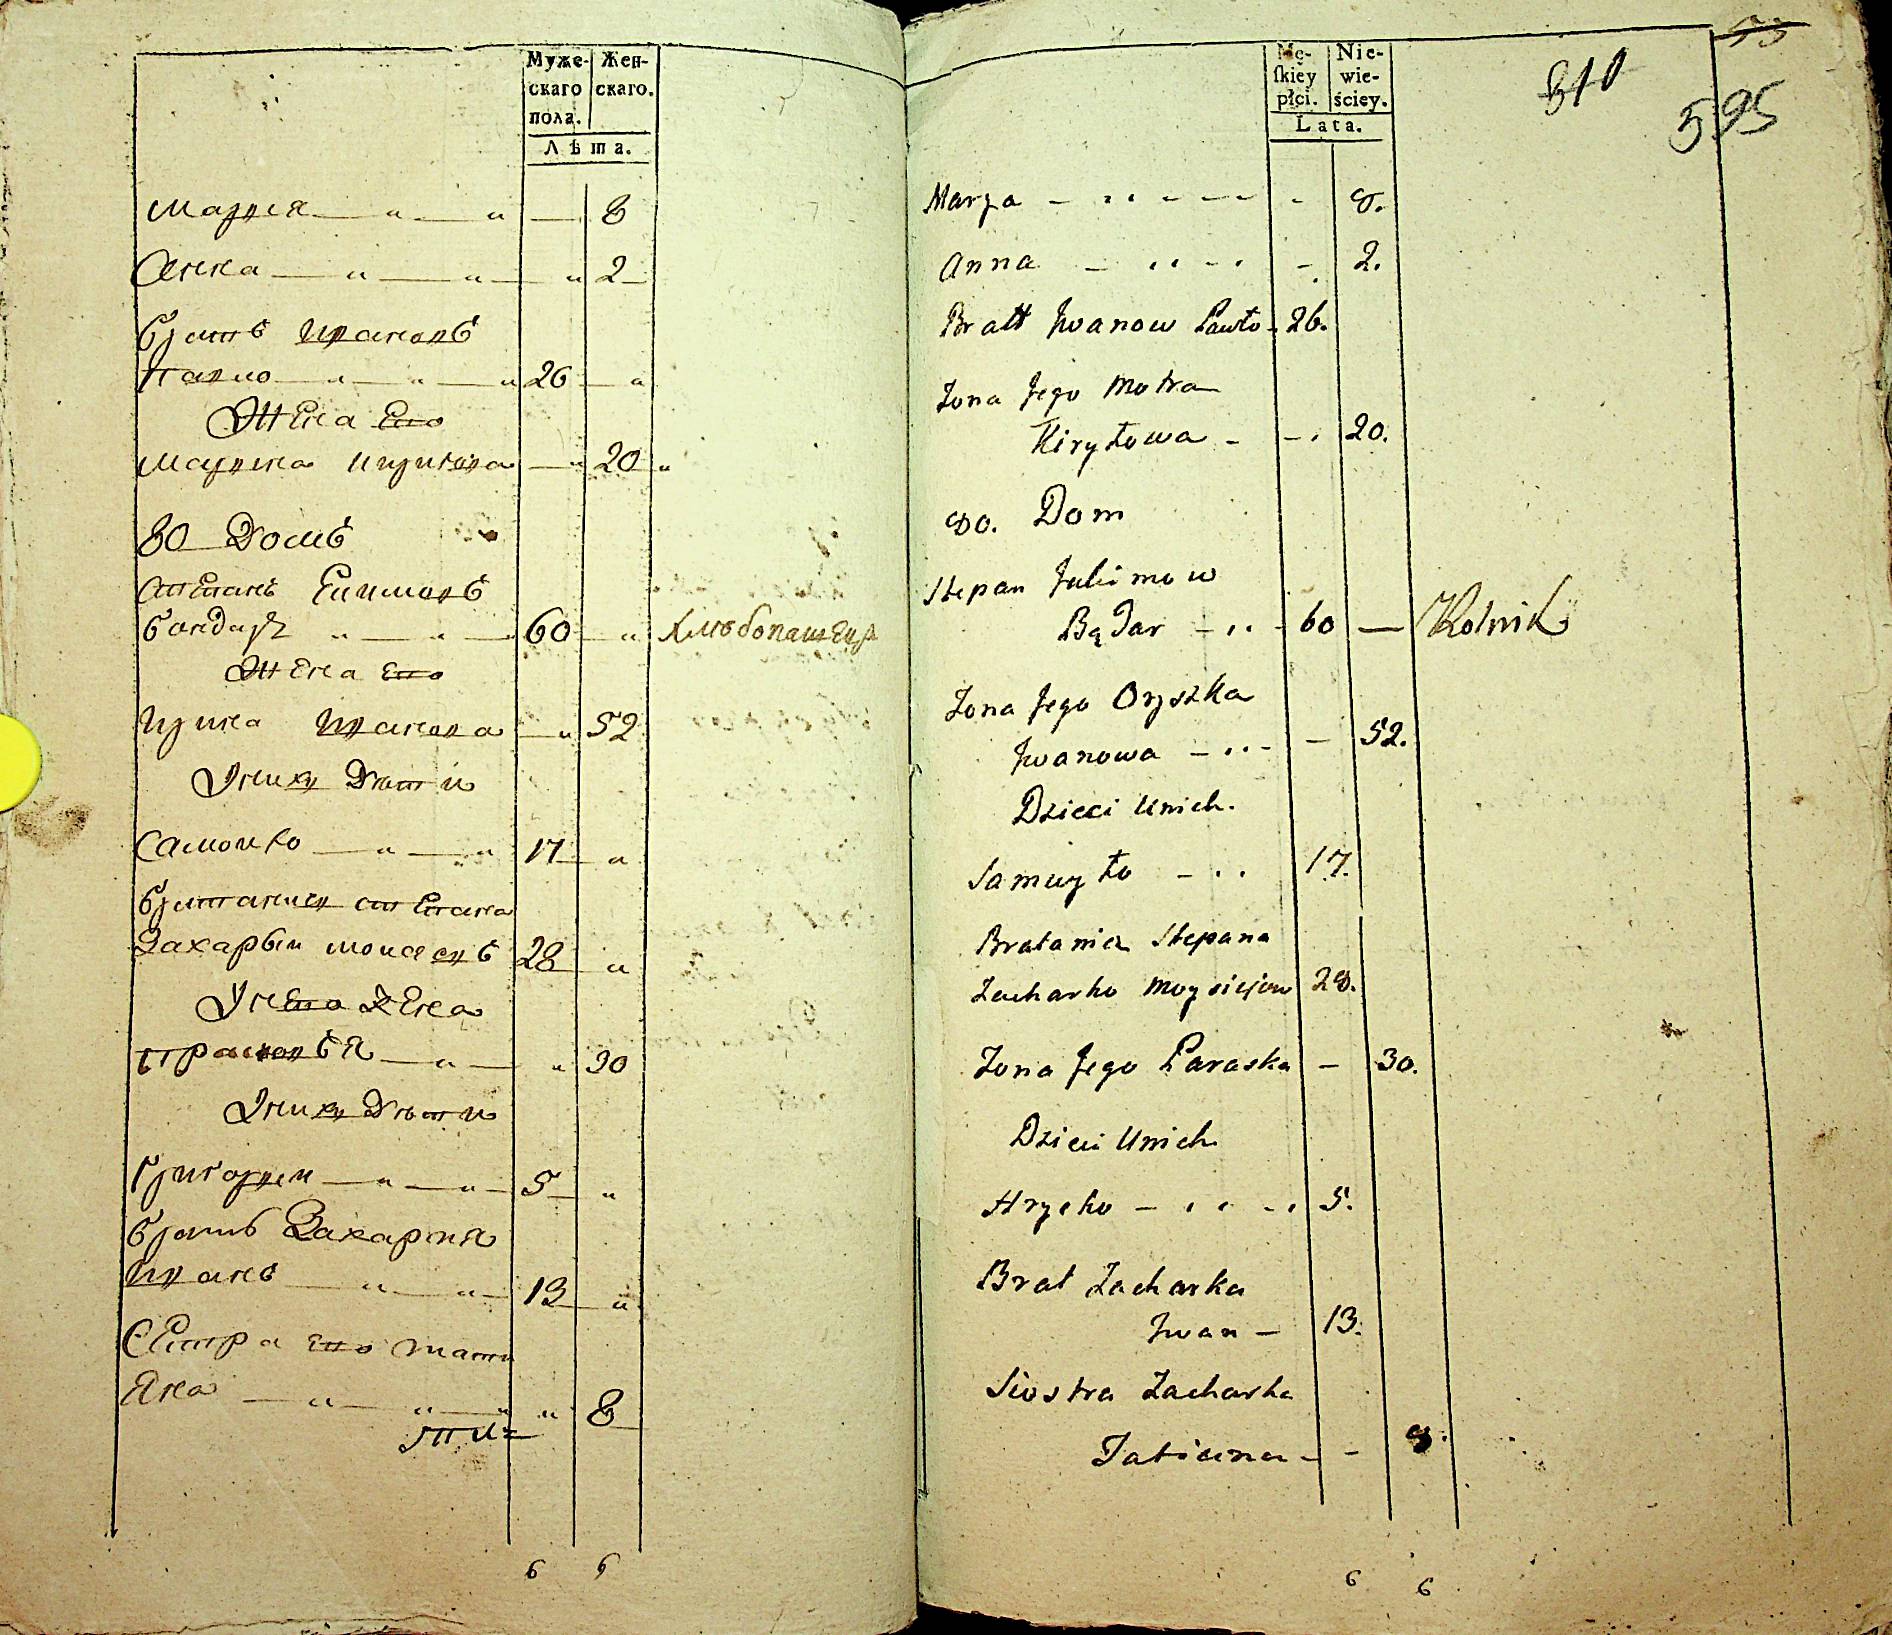 Муже-
скаго
пола.
Жен-
скаго.
Лѣта.
Марья 8
Анна 2
братъ Ивановъ
Павло 26
Жена Его
Мотрона Кирилова 20
80 Домъ
Степанъ Ефимовъ
бондарь 60 Хлѣбопашецъ
Жена Его
Ирина Иванова 52
У них Дѣти
Самойло 17
братаничъ Степана
Захарый Моисеевъ 28
У него Жена
Прасковья 30
У них Дѣти
Григорий 5
братъ Захария
Иванъ 13
Сестра Его Тати
Яна 8
6 6
Mę-
ſkiey
płci.
Nie-
wie-
ściey.
Lata.
53
310
595
Marya 8.
Anna 2.
Bratt Jwanow Pawło 26.
Zona Jego Motra
Kiryłowa 20.
80. Dom
Stepan Juhimow
Będar 60 Rolnik
Zona Jego Oryszka
Jwanowa 52.
Dzieci Unich.
Samuyło 17.
Bratanicz Stepana
Zacharko Moysiejow 28.
Zona Jego Paraska 30.
Dzieci Unich
Hryćko 5.
Brat Zacharka
Jwan 13.
Siostra Zacharka
Tatiana 8.
6 6